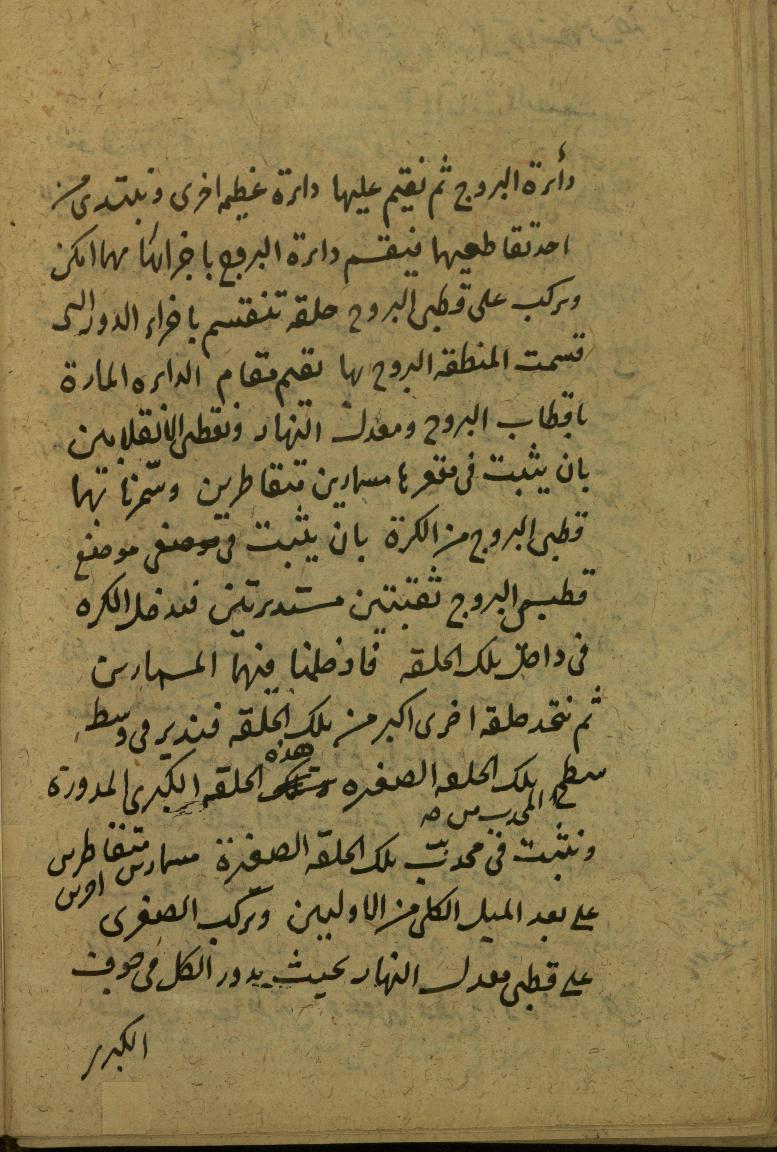 دائرة البروج ثم نقيم عليها دائرة عظيمه اخرى ونبتدى من
احد تقاطعيها فينقسم دائرة البروج باجزائها مهما امكن
ويركب على قطبى البروج حلقه تنقسم باجزاء الدور التى
قسمت المنطقه البروج بها نقيم مقام الدائره المارة
باقطاب البروج ومعدل النهار ونقطى الانقلابين
بان يثبت فى مقعرها مسمارين متقاطرين وسمرناتها
قطبى البروج من الكرة بان يثبت فى موضعى موضع
قطبى البروج ثقبتين مستديرتين فندخل الكره
فى داخل تلك الحلقه فادخلنا فيهما المسمارين
ثم نتخذ حلقه اخرى اكبر من تلك الحلقه فندير فى وسط
سطح تلك الحلقه الصغيره هذه الحلقه الكبرى المدورة
المحدب من
ونثبت فى محدب تلك الحلقه الصغيرة مسمارين متقاطرين
على بعد الميل الكلى من الاوليين ونركب الصغرى
اخرين
على قطبى معدل النهار بحيث يدور الكل فى جوف
الكبرى